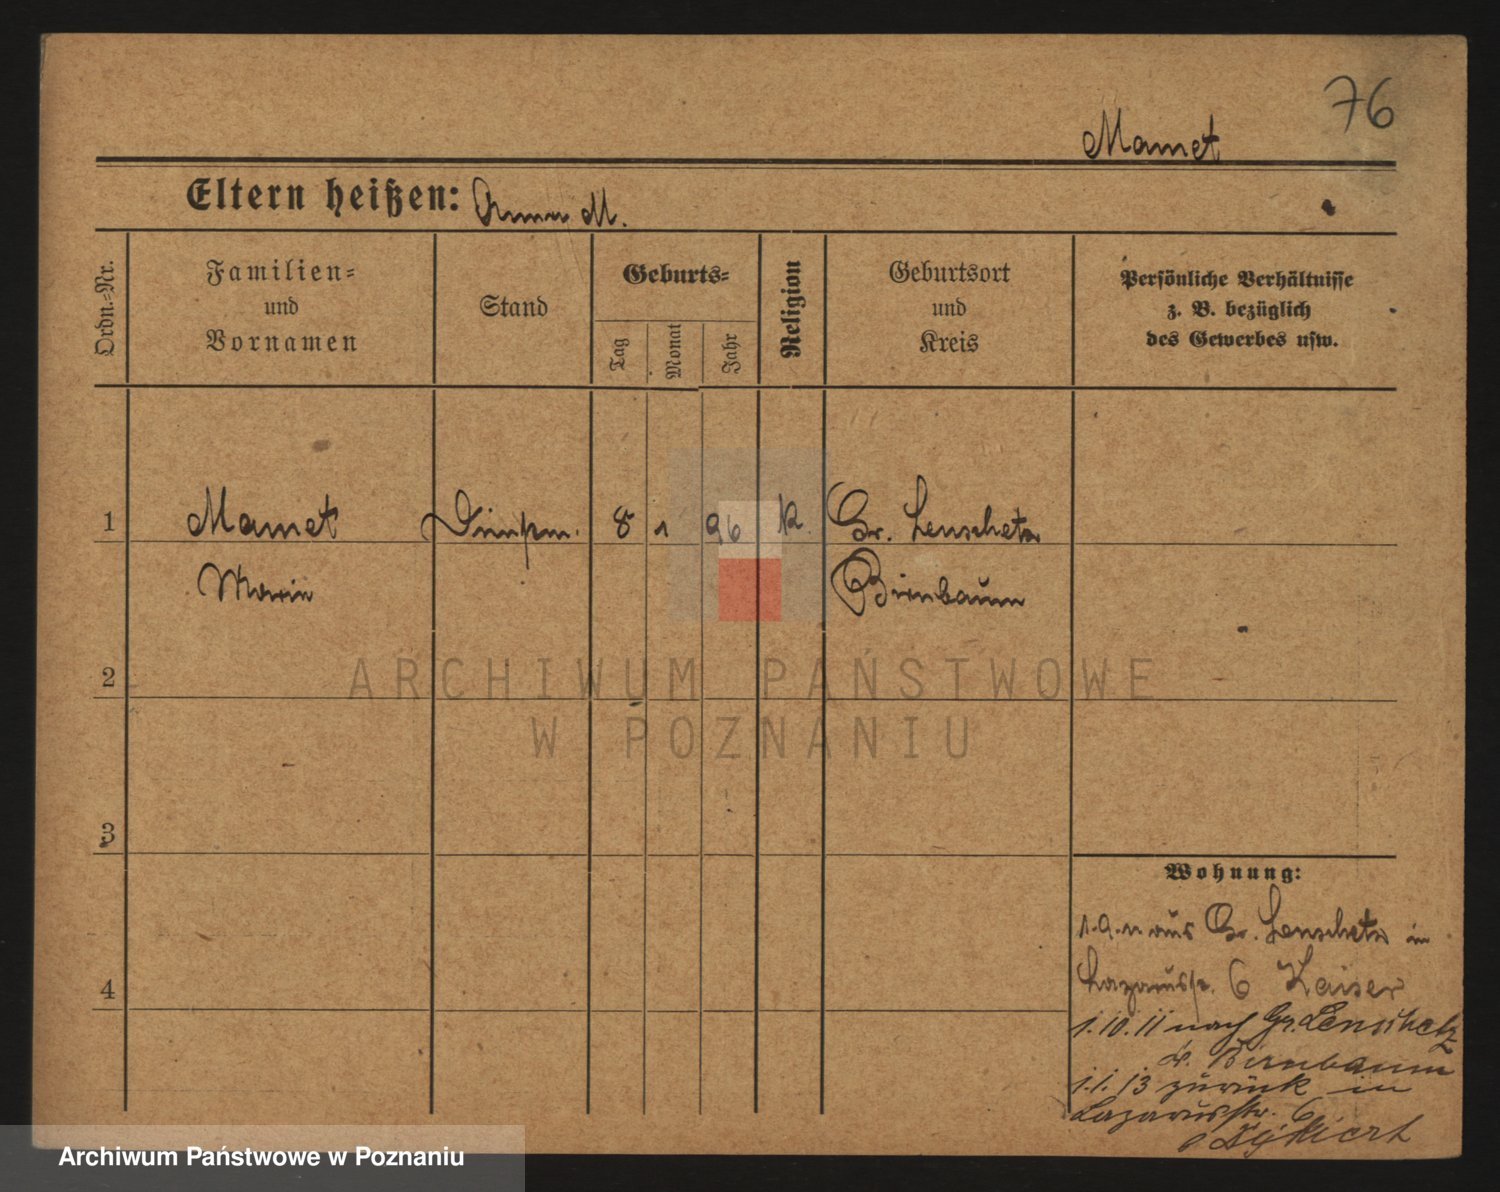 76
Mamet
Eltern heißen: Anna M.
Ordn.=Nr.
Familien=
und
Vornamen
Stand
Geburts=
Tag
Monat
Jahr
Religion
Geburtsort
und
Kreis
Persönliche Verhältnisse
z. B. bezüglich
des Gewerbes usw.
1 Mamet 8 1 96 k. Gr. Lenschetz
Marie Birnbaum
2
3
4
Wohnung:
aus Gr. Lenschetz in
Lazarusstr. 6 Kaiser
1.10.11 nach Gr. Lenschetz
Kr. Birnbaum
1.1.13 zurück in
Lazarusstr. 6
ARCHIWUM PAŃSTWOWE
W POZNANIU
Archiwum Państwowe w Poznaniu